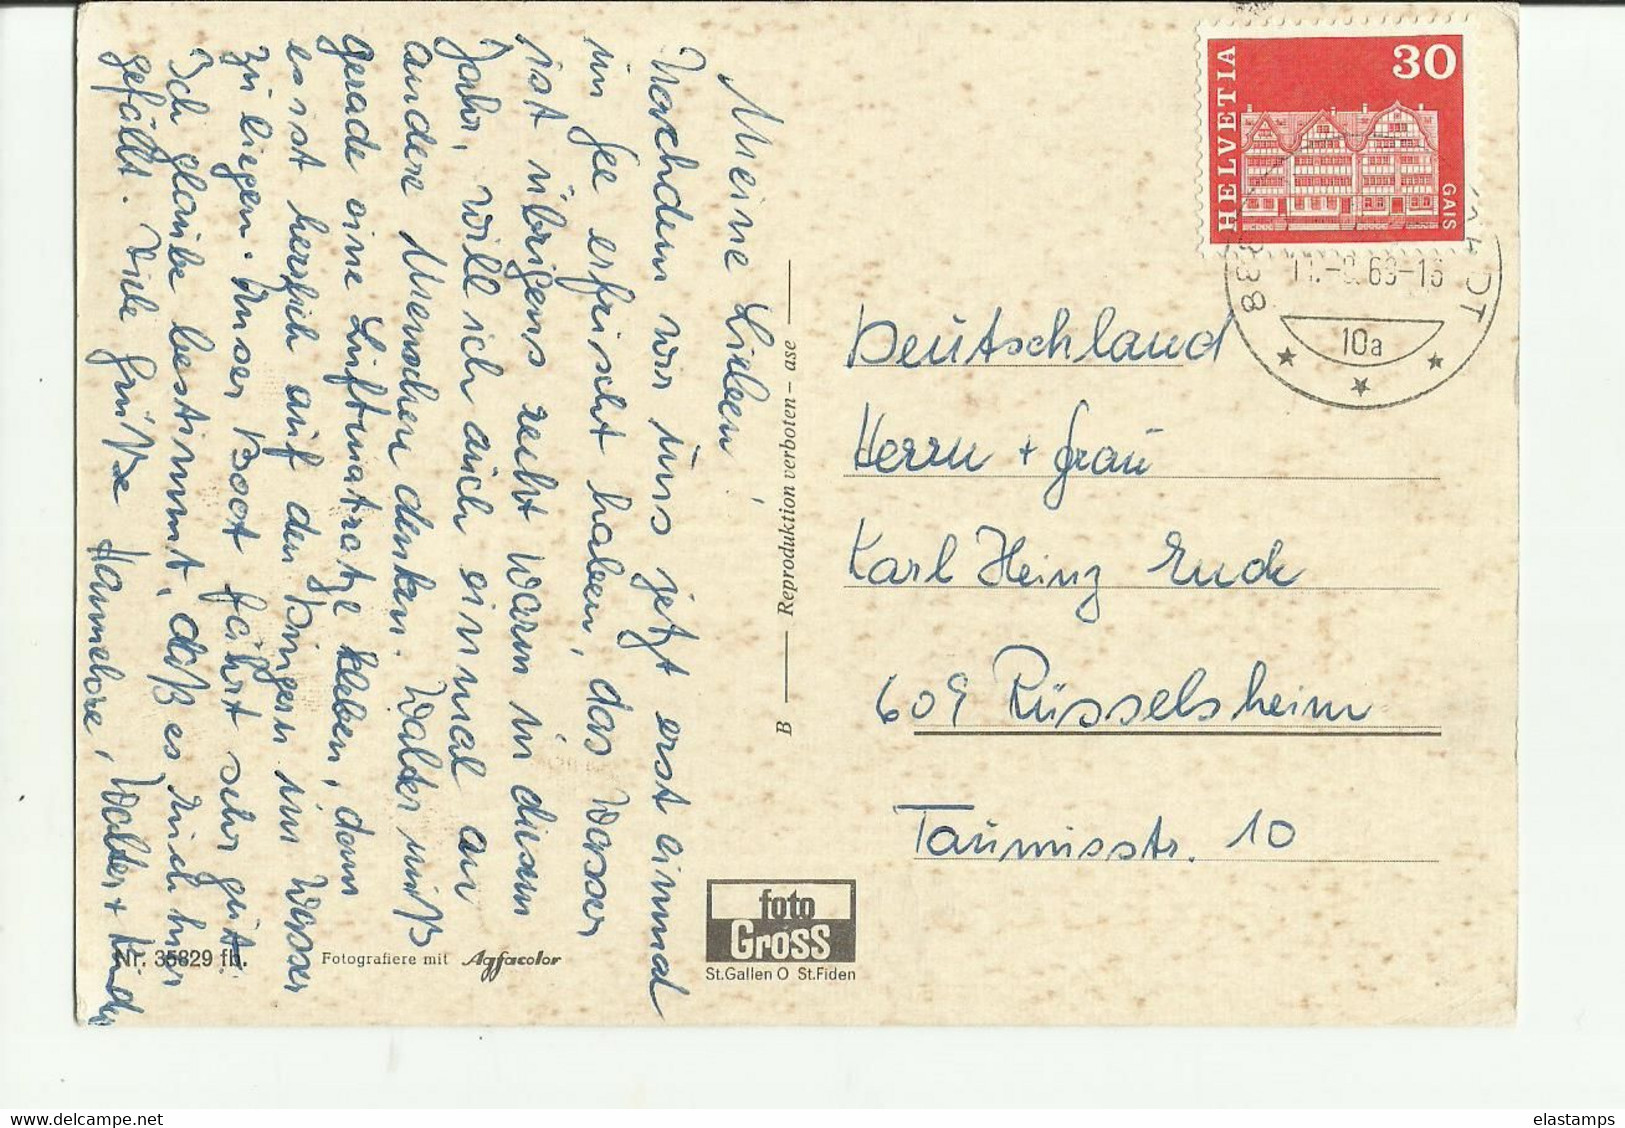 Meine Lieben!
Nachdem wir uns jetzt erst einmal
im See erfrischt haben, das Wasser
ist übrigens recht warm in diesem
Jahr, will ich auch einmal an
andere Menschen denken. Walter muß
gerade eine Luftmatratze kleben, dann
es ist herrlich auf den Dingern im Wasser
zu liegen. Unser Boot fährt sehr gut.
Ich glaube bestimmt, daß es Euch hier
gefällt. Viele Grüße Hannelore, Walter + Kinder
B — Reproduktion verboten – ase —
HELVETIA
30
GAIS
11.-8.69-15
10a
Deutschland
Herrn + Frau
Karl Heinz Enck
609 Rüsselsheim
Taunusstr. 10
Nr. 35829 fh.
Fotografiere mit Agfacolor
foto
Gross
St.Gallen O St.Fiden
elastamps